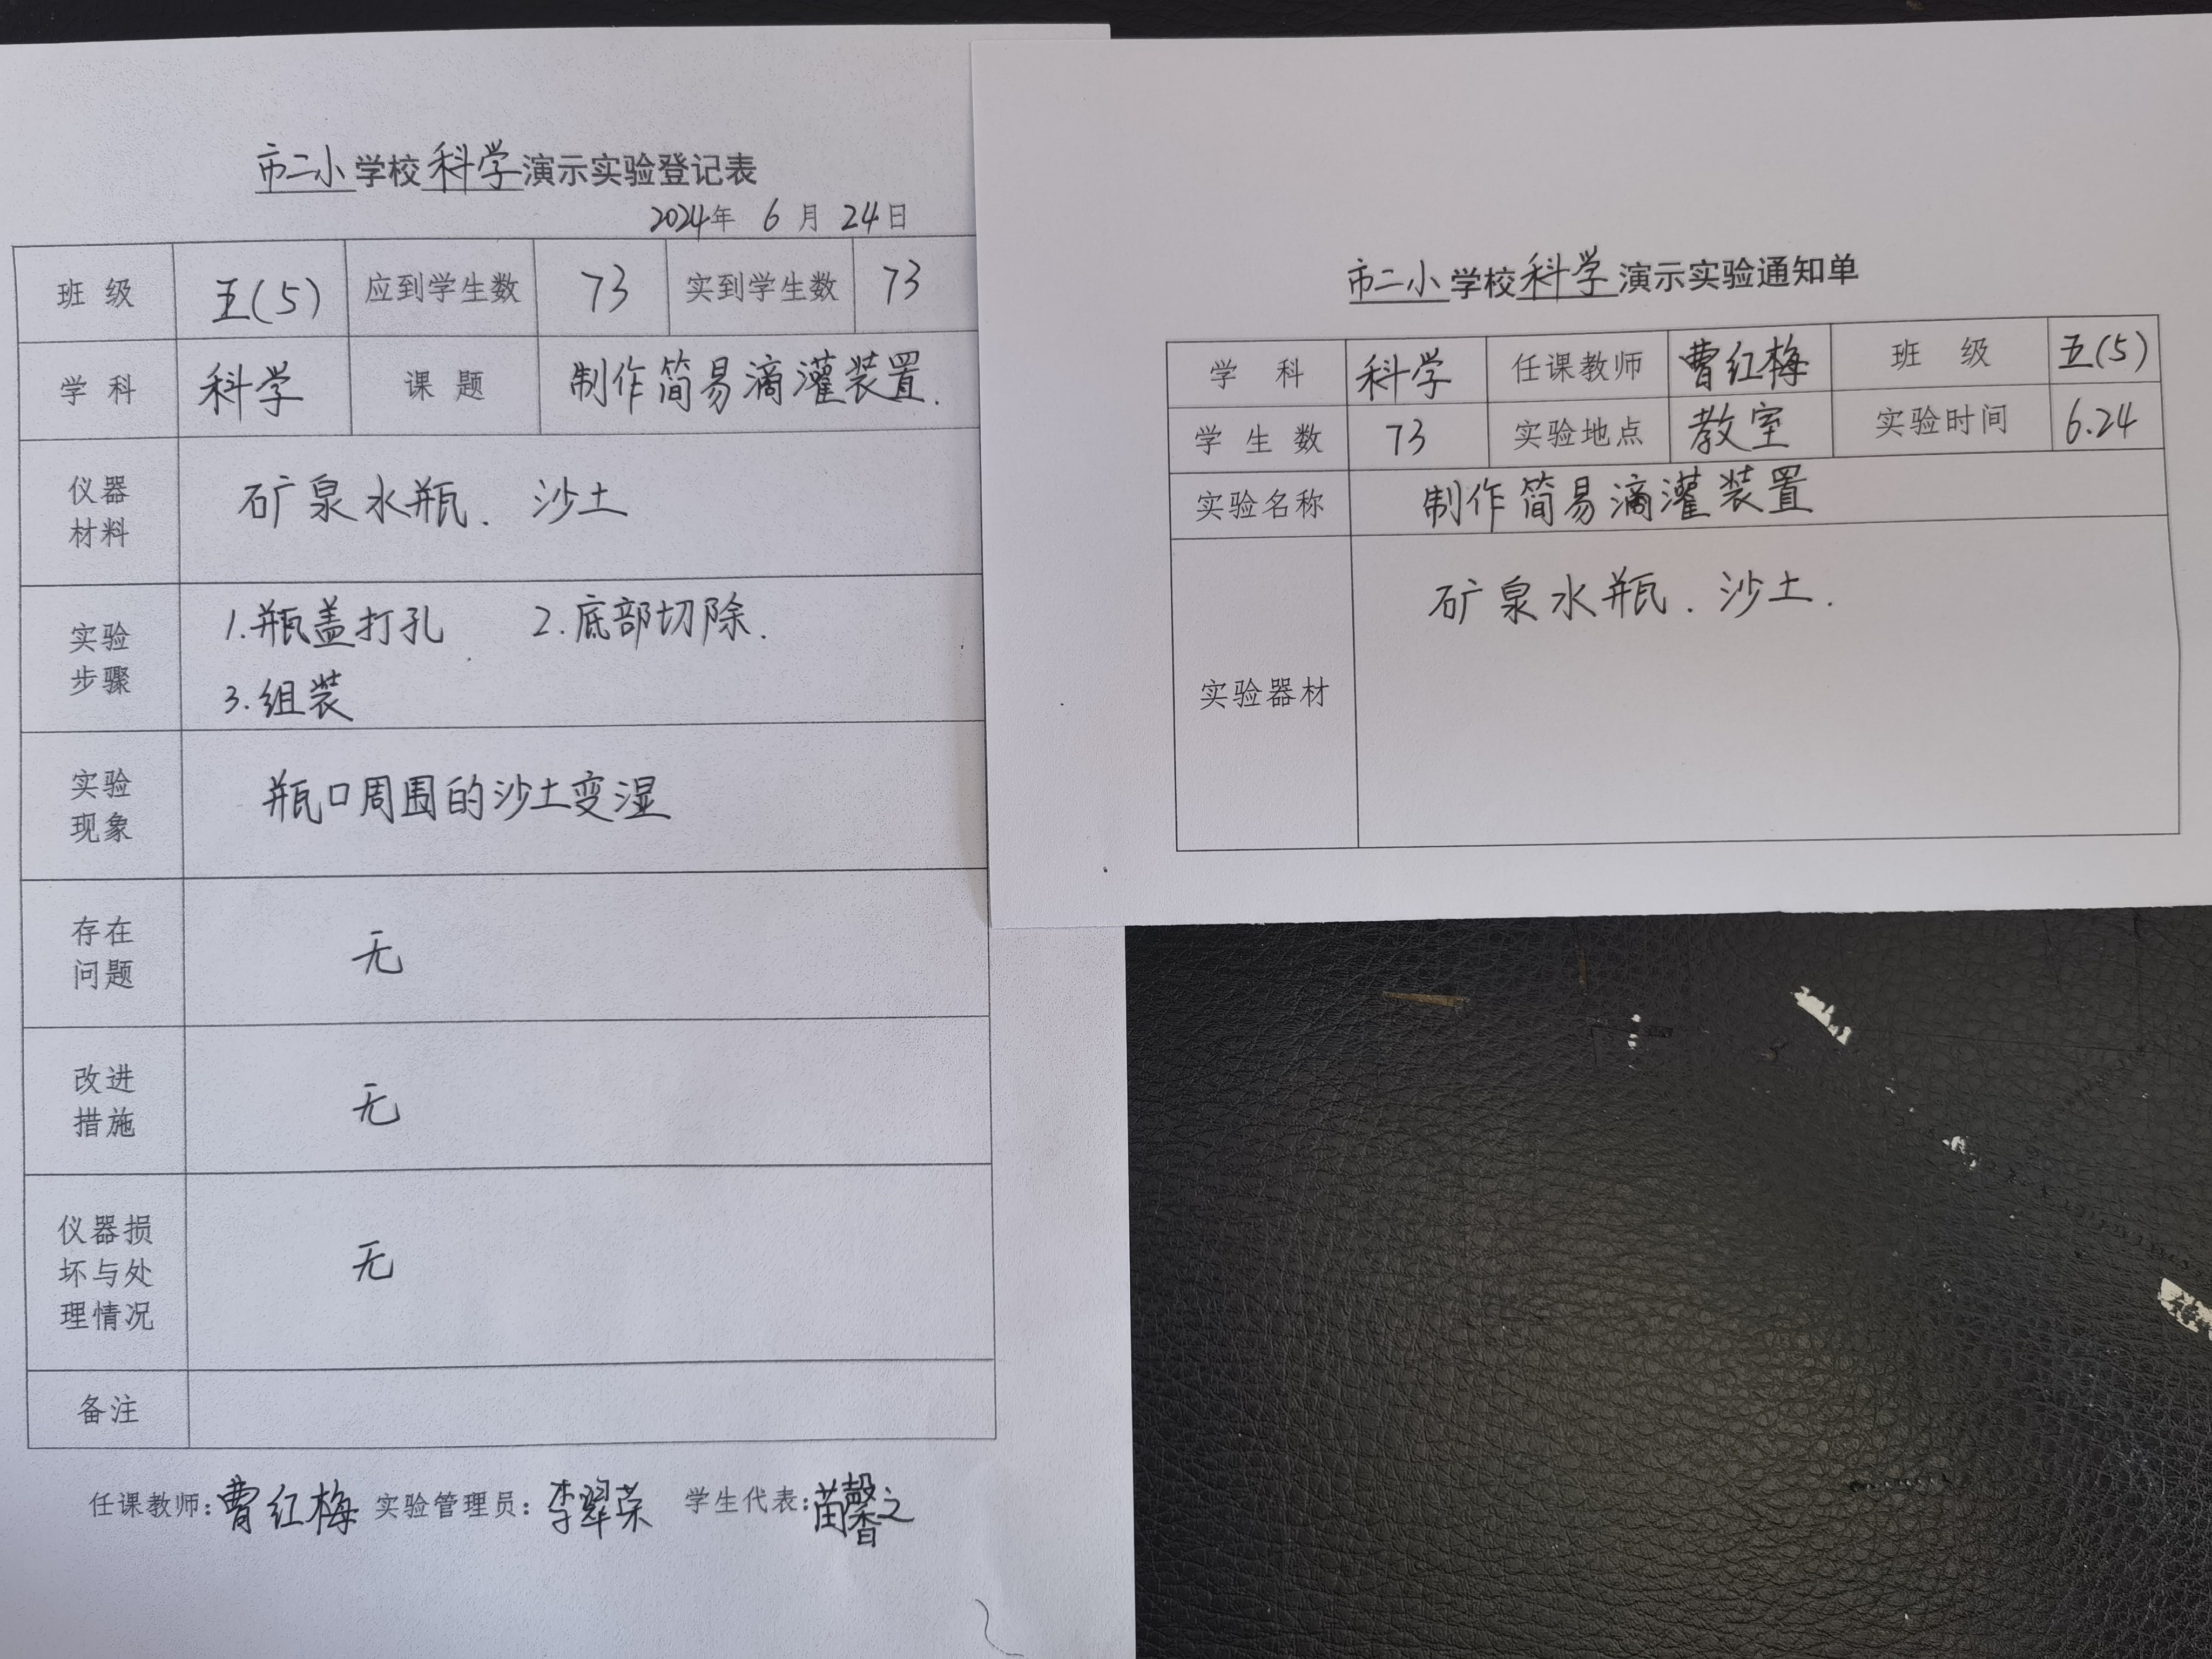 市二小学校科学演示实验登记表
2024年 6 月 24日
班 级 五(5) 应到学生数 73 实到学生数 73
学 科 科学 课 题 制作简易滴灌装置.
仪器
材料
矿泉水瓶、沙土
实验
步骤
1.瓶盖打孔 2.底部切除.
3.组装
实验
现象
瓶口周围的沙土变湿
存在
问题
无
改进
措施
无
仪器损
坏与处
理情况
无
备注
任课教师:曹红梅 实验管理员:李翠荣 学生代表:苗馨之
市二小学校科学演示实验通知单
学 科 科学 任课教师 曹红梅 班 级 五(5)
学 生 数 73 实验地点 教室 实验时间 6.24
实验名称 制作简易滴灌装置
实验器材
矿泉水瓶、沙土.